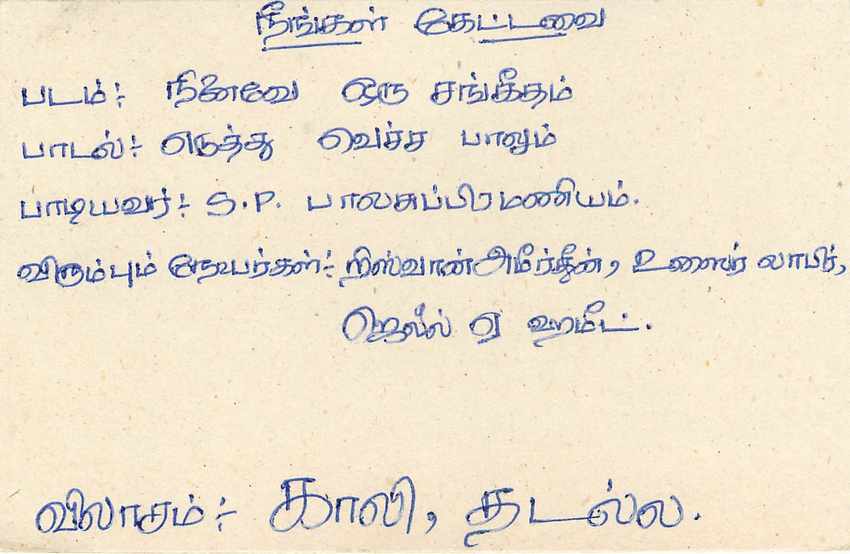 நீங்கள் கேட்டவை
படம்:- நினைவே ஒரு சங்கீதம்
பாடல்:- எடுத்து வெச்ச பாலும்
பாடியவர்:- S.P. பாலசுப்பிரமணியம்.
விரும்பும் நேயர்கள்:- றிஸ்வான் அமீர்தீன், உஸைர் லாபிர்,
ஜெலீல் ஏ ஹமீட்.
விலாசம்:- காலி, தடல்ல.